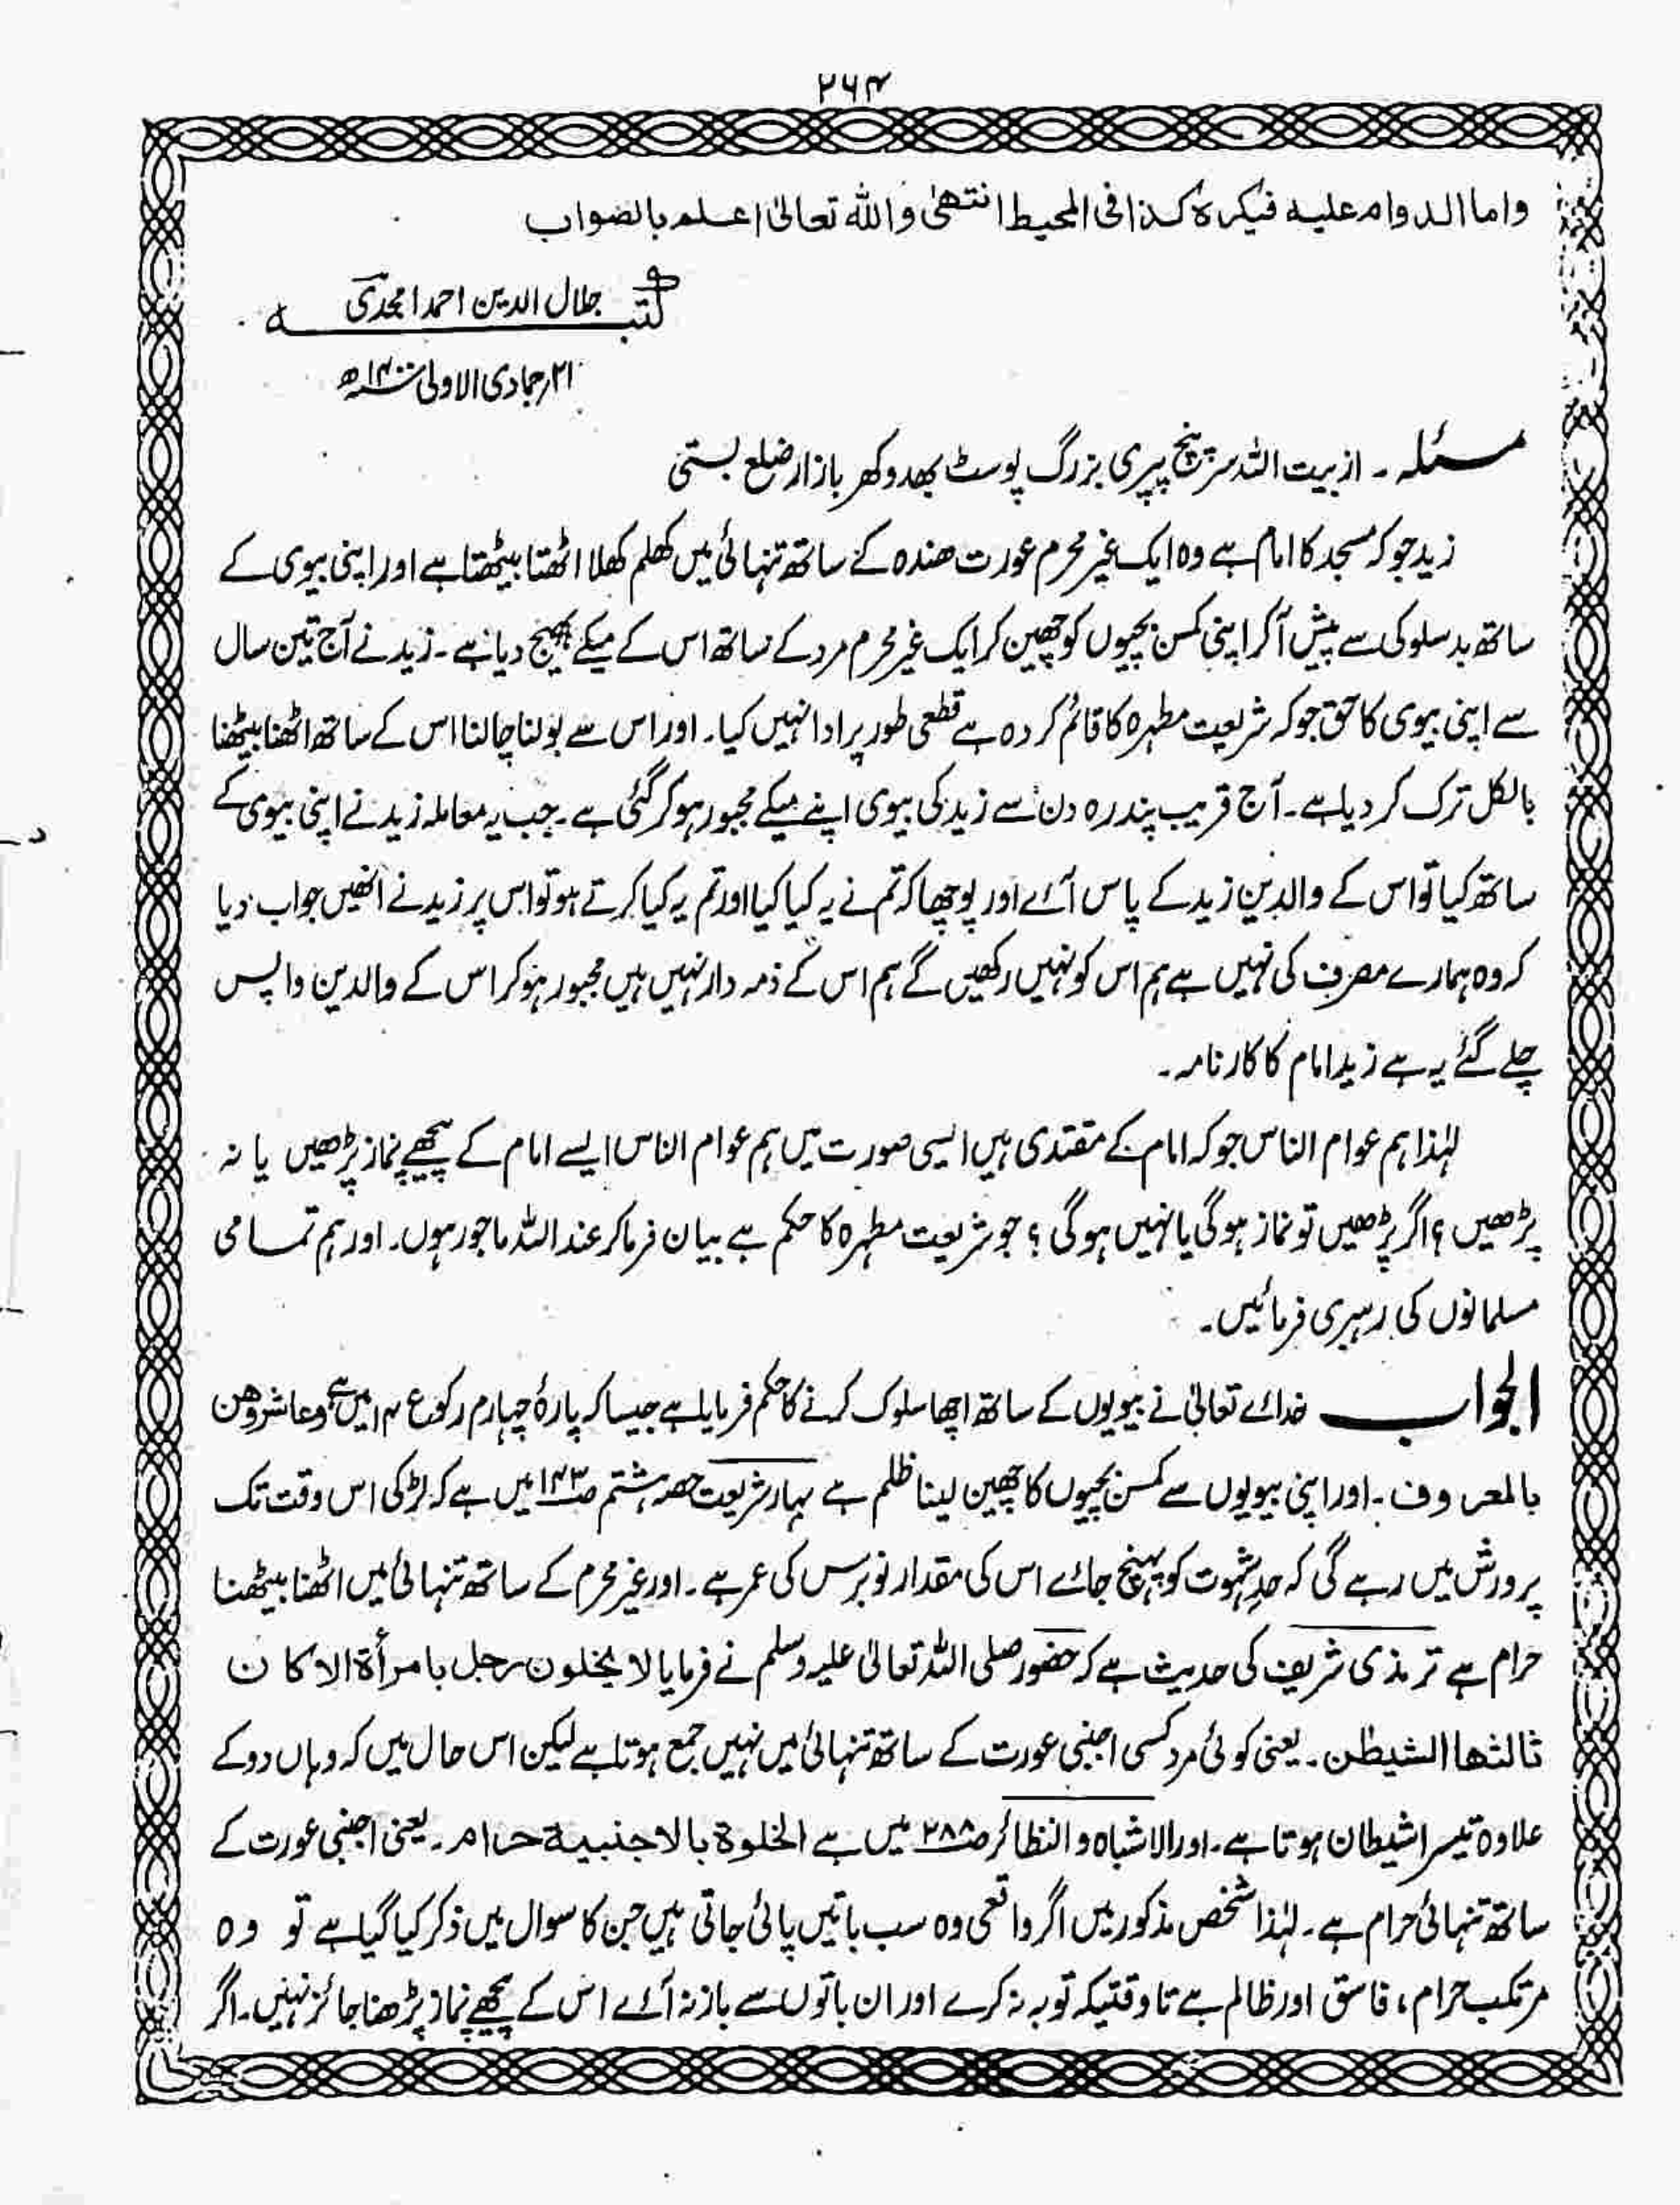 ۲۶۴
واما الدوام علیه فیکره کذا فی المحیط انتھیٰ واللّٰہ تعالیٰ اعلم بالصواب
کتبہ جلال الدین احمد امجدی
۲۱؍جمادی الاولیٰ ۱۴۰۰ھ
مسئلہ ۔ از بیت اللہ سرپنچ پپری بزرگ پوسٹ بھدوکھر بازار ضلع بستی
زید جو کہ مسجد کا امام ہے وہ ایک غیر محرم عورت ھندہ کے ساتھ تنہائی میں کھلم کھلا اٹھتا بیٹھتا ہے اور اپنی بیوی کے
ساتھ بدسلوکی سے پیش آکر اپنی کمسن بچیوں کو چھین کر ایک غیر محرم مرد کے ساتھ اس کے میکے بھیج دیا ہے ۔ زید نے آج تین سال
سے اپنی بیوی کا حق جو کہ شریعت مطہرہ کا قائم کردہ ہے قطعی طور پر ادا نہیں کیا ۔ اور اس سے بولنا چالنا اس کے ساتھ اٹھنا بیٹھنا
بالکل ترک کر دیا ہے ۔ آج قریب پندرہ دن سے زید کی بیوی اپنے میکے مجبور ہو کر گئی ہے ۔ جب یہ معاملہ زید نے اپنی بیوی کے
ساتھ کیا تو اس کے والدین زید کے پاس آئے اور پوچھا کہ تم نے یہ کیا کیا اور تم یہ کیا کرتے ہو تو اس پر زید نے انھیں جواب دیا
کہ وہ ہمارے مصرف کی نہیں ہے ہم اس کو نہیں رکھیں گے ہم اس کے ذمہ دار نہیں ہیں مجبور ہو کر اس کے والدین واپس
چلے گئے یہ ہے زید امام کا کارنامہ ۔
لہٰذا ہم عوام الناس جو کہ امام کے مقتدی ہیں ایسی صورت میں ہم عوام الناس ایسے امام کے پیچھے نماز پڑھیں یا نہ
پڑھیں ؟ اگر پڑھیں تو نماز ہوگی یا نہیں ہوگی ؟ جو شریعت مطہرہ کا حکم ہے بیان فرما کر عند اللہ ماجور ہوں ۔ اور ہم تمامی
مسلمانوں کی رہبری فرمائیں ۔
الجواب خدائے تعالیٰ نے بیویوں کے ساتھ اچھا سلوک کرنے کا حکم فرمایا ہے جیسا کہ پارۂ چہارم رکوع ۱۴ میں ہے وعاشروھن
بالمعروف ۔ اور اپنی بیویوں سے کمسن بچیوں کا چھین لینا ظلم ہے بہار شریعت حصہ ہشتم ص۱۴۳ میں ہے کہ لڑکی اس وقت تک
پرورش میں رہے گی کہ حد شہوت کو پہنچ جائے اس کی مقدار نو برس کی عمر ہے ۔ اور غیر محرم کے ساتھ تنہائی میں اٹھنا بیٹھنا
حرام ہے ترمذی شریف کی حدیث ہے کہ حضور صلی اللہ تعالیٰ علیہ وسلم نے فرمایا لا یخلون رجل بامرأة الا کان
ثالثھا الشیطٰن ۔ یعنی کوئی مرد کسی اجنبی عورت کے ساتھ تنہائی میں نہیں جمع ہوتا ہے لیکن اس حال میں کہ وہاں دو کے
علاوہ تیسرا شیطان ہوتا ہے ۔ اور الاشباہ والنظائر ص۲۸۸ میں ہے الخلوة بالاجنبیة حرام ۔ یعنی اجنبی عورت کے
ساتھ تنہائی حرام ہے ۔ لہٰذا شخص مذکور میں اگر واقعی وہ سب باتیں پائی جاتی ہیں جن کا سوال میں ذکر کیا گیا ہے تو وہ
مرتکب حرام ، فاسق اور ظالم ہے تا وقتیکہ توبہ نہ کرے اور ان باتوں سے باز نہ آئے اس کے پیچھے نماز پڑھنا جائز نہیں ۔ اگر